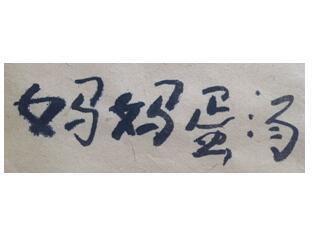 妈妈蛋汤